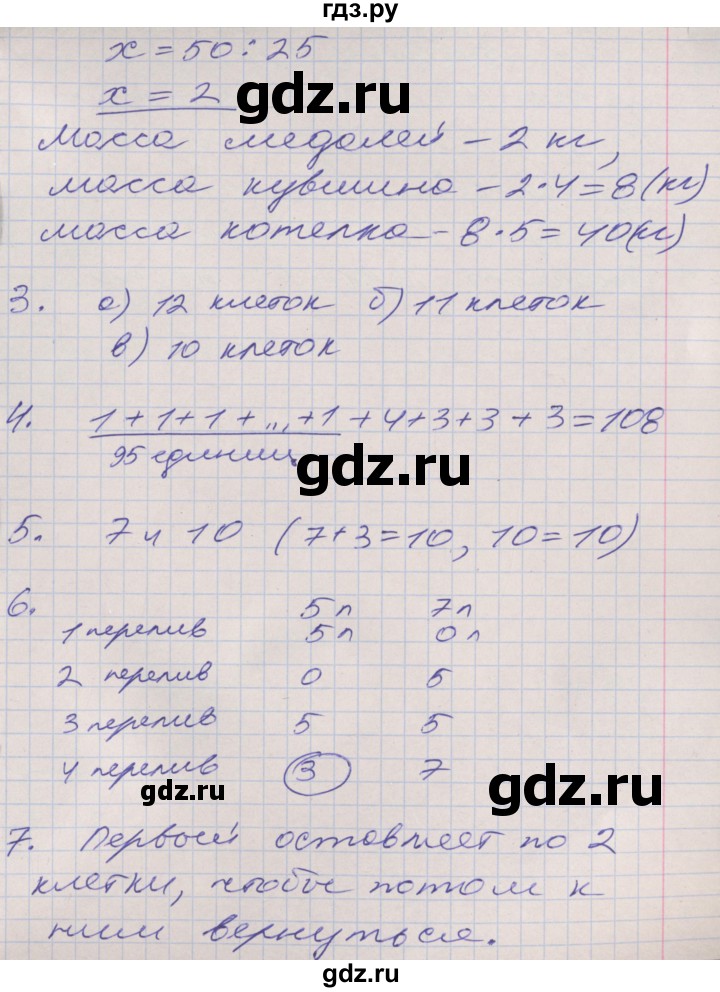 гдз.ру
x = 50 : 25
x = 2
gdz.ru
Масса медалей – 2 кг,
масса кувшина – 2·4=8(кг)
масса котелка – 8·5=40(кг)
3. а) 12 клеток б) 11 клеток
в) 10 клеток
4. 1+1+1+...+1+4+3+3+3=108
95 единиц.
gdz.ru
5. 7 и 10 (7+3=10, 10=10)
6. 5л 7л
1 перелив 5л 0л
2 перелив 0 5
3 перелив 5 5
4 перелив 3 7
gdz.ru
gdz.ru
7. Первый оставляет по 2
клетки, чтобы потом к
ним вернуться.
gdz.ru